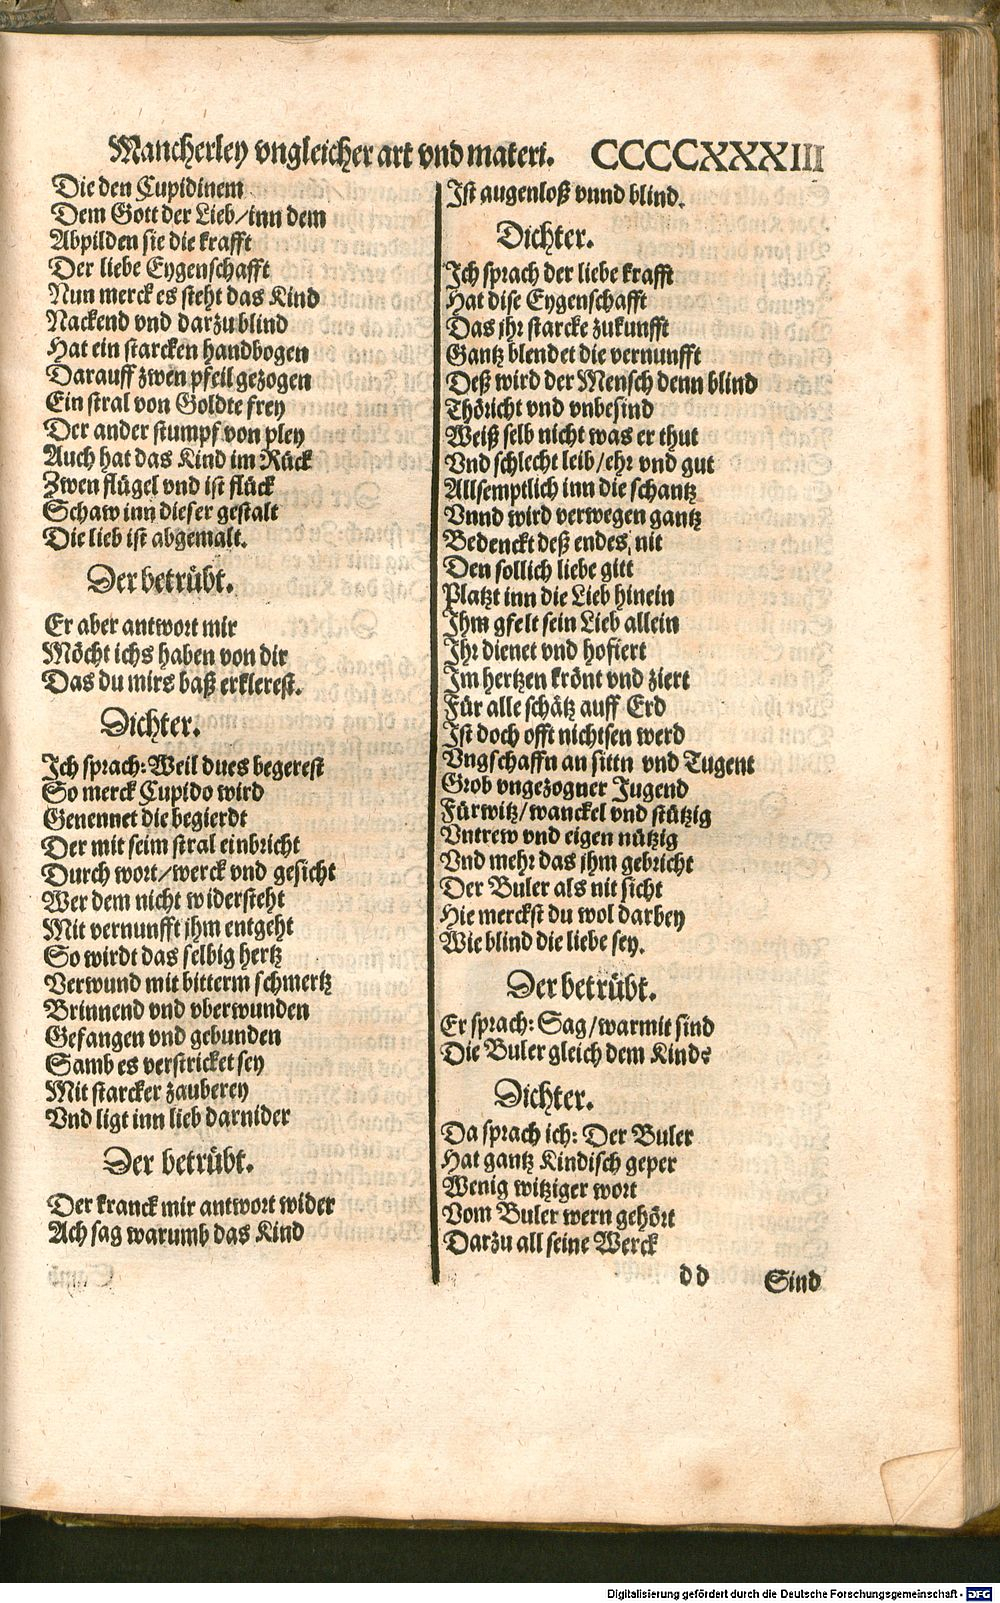 Mancherley vngleicher art vnd materi. CCCCXXXIII
Die den Cupidinem
Dem Gott der Lieb/inn dem
Abpilden sie die krafft
Der liebe Eygenschafft
Nun merck es steht das Kind
Nackend vnd darzu blind
Hat ein starcken handbogen
Darauff zwen pfeil gezogen
Ein stral von Goldte frey
Der ander stumpf von pley
Auch hat das Kind im Rück
Zwen flügel vnd ist flück
Schaw inn dieser gestalt
Die lieb ist abgemalt.
Der betrübt.
Er aber antwort mir
Möcht ichs haben von dir
Das du mirs baß erklerest.
Dichter.
Ich sprach: Weil dues begerest
So merck Cupido wird
Genennet die begierdt
Der mit seim stral einbricht
Durch wort/werck vnd gesicht
Wer dem nicht widersteht
Mit vernunfft jhm entgeht
So wirdt das selbig hertz
Verwund mit bitterm schmertz
Brinnend vnd vberwunden
Gefangen vnd gebunden
Samb es verstricket sey
Mit starcker zauberey
Vnd ligt inn lieb darnider
Der betrübt.
Der kranck mir antwort wider
Ach sag warumb das Kind
Ist augenloß vnnd blind.
Dichter.
Ich sprach der liebe krafft
Hat dise Eygenschafft
Das jhr starcke zukunfft
Gantz blendet die vernunfft
Deß wird der Mensch denn blind
Thöricht vnd vnbesind
Weiß selb nicht was er thut
Vnd schlecht leib/ehr vnd gut
Allsemptlich inn die schantz
Vnnd wird verwegen gantz
Bedenckt deß endes nit
Den sollich liebe gitt
Platzt inn die Lieb hinein
Ihm gfelt sein Lieb allein
Ihr dienet vnd hofiert
Im hertzen krönt vnd ziert
Für alle schätz auff Erd
Ist doch offt nichtsen werd
Vngschaffn an sittn vnd Tugent
Grob vngezogner Jugend
Fürwitz/wanckel vnd stützig
Vntrew vnd eigen nützig
Vnd mehr das jhm gebricht
Der Buler als nit sicht
Hie merckst du wol darbey
Wie blind die liebe sey.
Der betrübt.
Er sprach: Sag/warmit sind
Die Buler gleich dem Kind?
Dichter.
Da sprach ich: Der Buler
Hat gantz Kindisch geper
Wenig witziger wort
Vom Buler wern gehört
Darzu all seine Werck
dd Sind
Digitalisierung gefördert durch die Deutsche Forschungsgemeinschaft - DFG